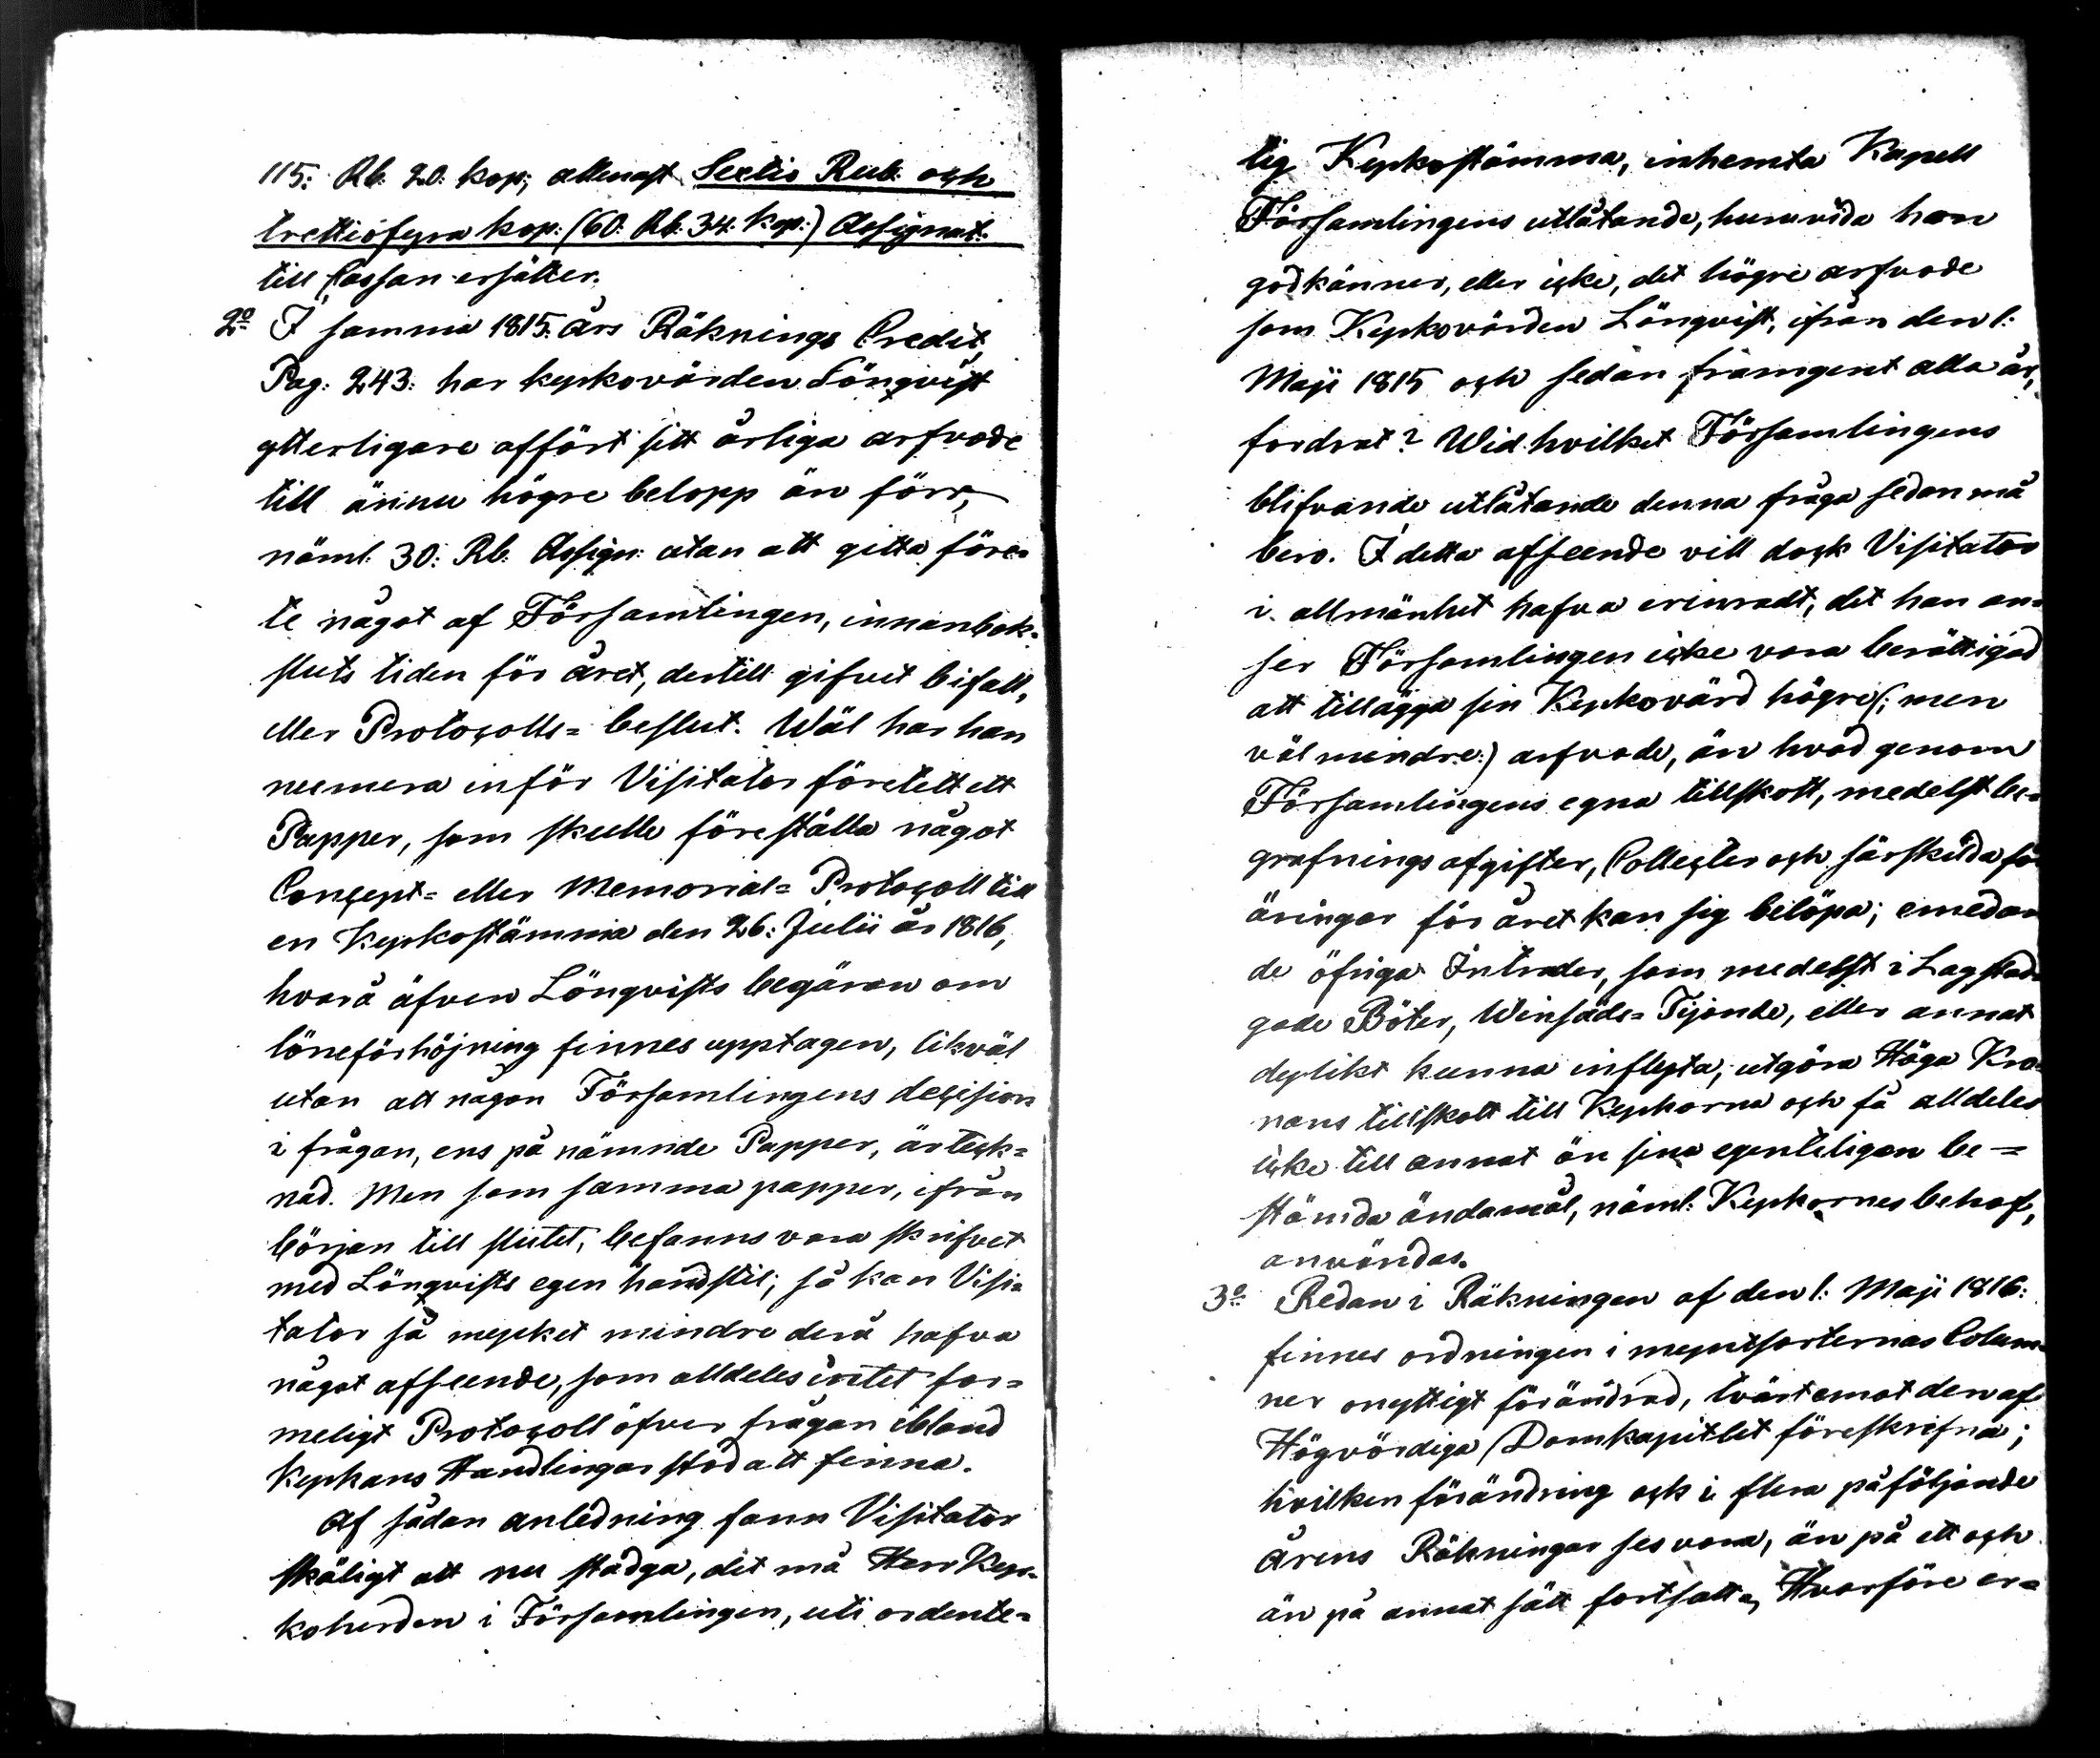 115: Rb. 20: kop; allenast Sextio Rub. och
trettiofyra kop: (60: Rb: 34: kop:) Assignat:
till Cassan ersätter.
2o I samma 1815: års Räknings Credit,
Pag: 243: har kyrkovärden Lönqvist
ytterligare affört sitt årliga arfvode
till ännu högre belopp än förr,
näml: 30: Rb: Assign: utan att gitta före-
te något af Församlingen, innan bok-
sluts tiden för året, dertill gifvet bifall,
eller Protocolls=beslut. Wäl har han
numera inför Visitator företett ett
Papper, som skulle föreställa något
Concept= eller Memorial=Protocoll till
en Kyrkostämma den 26: Julii år 1816,
hvarå äfven Lönqvists begäran om
löneförhöjning finnes upptagen, likväl
utan att någon Församlingens decision
i frågan, ens på nämnde Papper, är teck=
nad. Men som samma papper, ifrån
början till slutet, befanns vara skrifvet
med Lönqvists egen handstil; så kan Visi=
tator så mycket mindre derå hafva
något afseende, som alldeles intet for=
meligt Protocoll öfver frågan ibland
Kyrkans Handlingar stod att finna.
Af sådan anledning fann Visitator
skäligt att nu stadga, det må Herr Kyr=
koherden i Församlingen, uti ordente=
lig Kyrkostämma, inhemta Kapell
Församlingens utlåtande, huruvida hon
godkänner, eller icke, det högre arfvode
som Kyrkovärden Lönqvist, ifrån den 1:
Maji 1815 och sedan framgent alla år,
fordrat? Wid hvilket Församlingens
blifvande utlåtande denna fråga sedan må
bero. I detta afseende vill dock Visitator
i allmänhet hafva erinradt, det han an=
ser Församlingen icke vara berättigad
att tillägga sin Kyrkovärd högre (: men
väl mindre:) arfvode, än hvad genom
Församlingens egna tillskott, medelst be=
grafningsafgifter, Collecter och särskilda för
äringar för året kan sig belöpa; emedan
de öfriga Intrader, som medelst i Lag stad=
gade Böter, Winsäds=Tijonde, eller annat
dylikt kunna inflyta, utgöra Höga Kro=
nans tillskott till Kyrkorna och få alldeles
icke till annat än sina egenteligan be=
stämda ändamål, näml: Kyrkornes behof,
användas.
3o Redan i Räkningen af den 1: Maji 1816:
finnes ordningen i myntsorternas Colum=
ner onyttigt förändrad, tvärtemot den af
Högvördiga Domkapitlet föreskrifna;
hvilken förändring ock i flera påföljande
Årens Räkningar ses vara, än på ett och
än på annat sätt fortsatt, Hvarföre er=